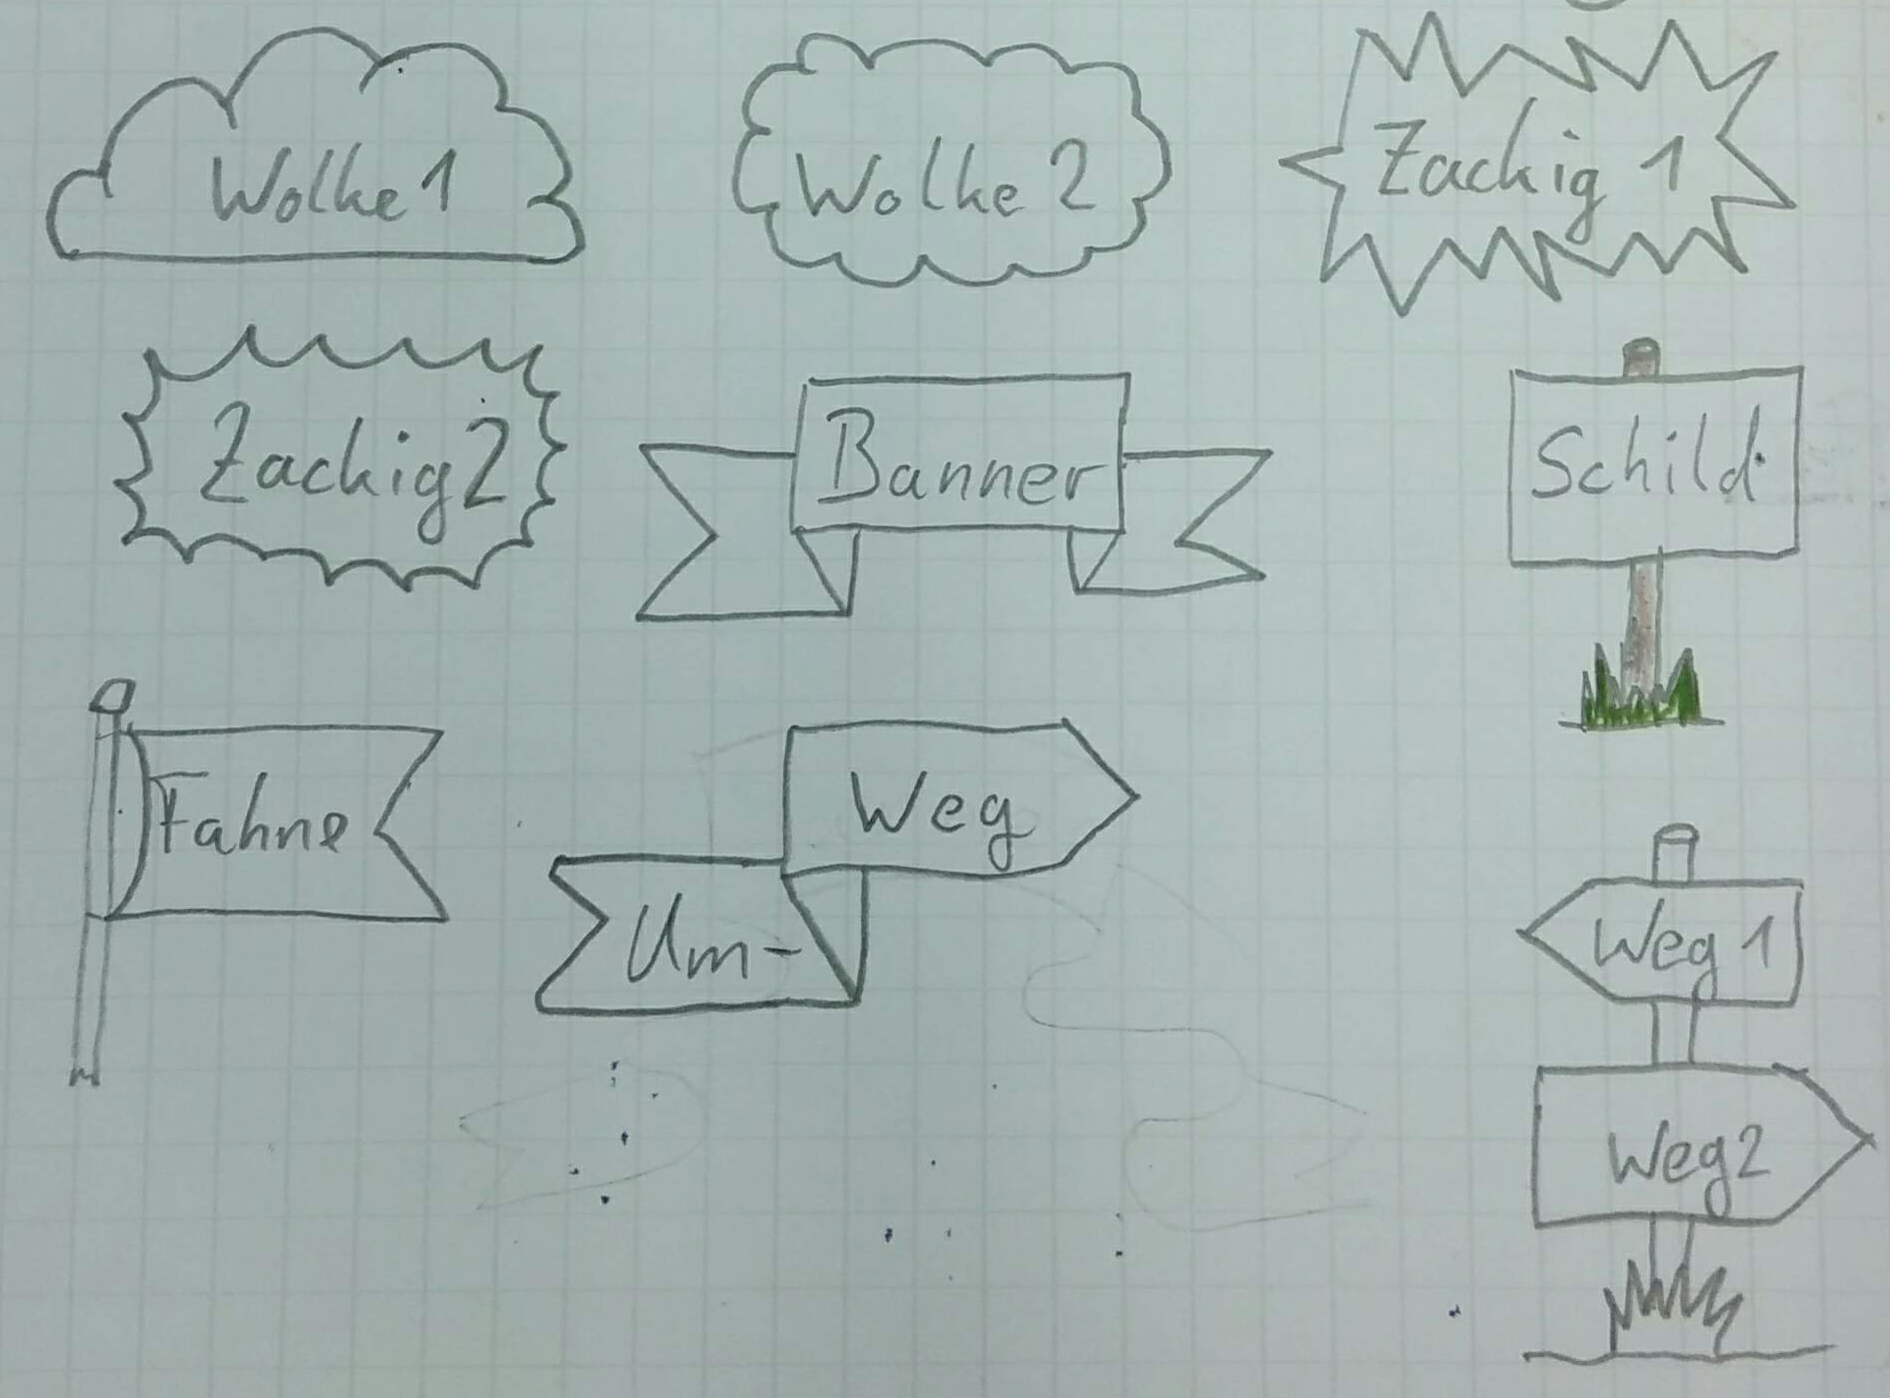 Wolke 1
Wolke 2
Zackig 1
Zackig 2
Banner
Schild
Fahne
Um-
Weg
Weg 1
Weg 2